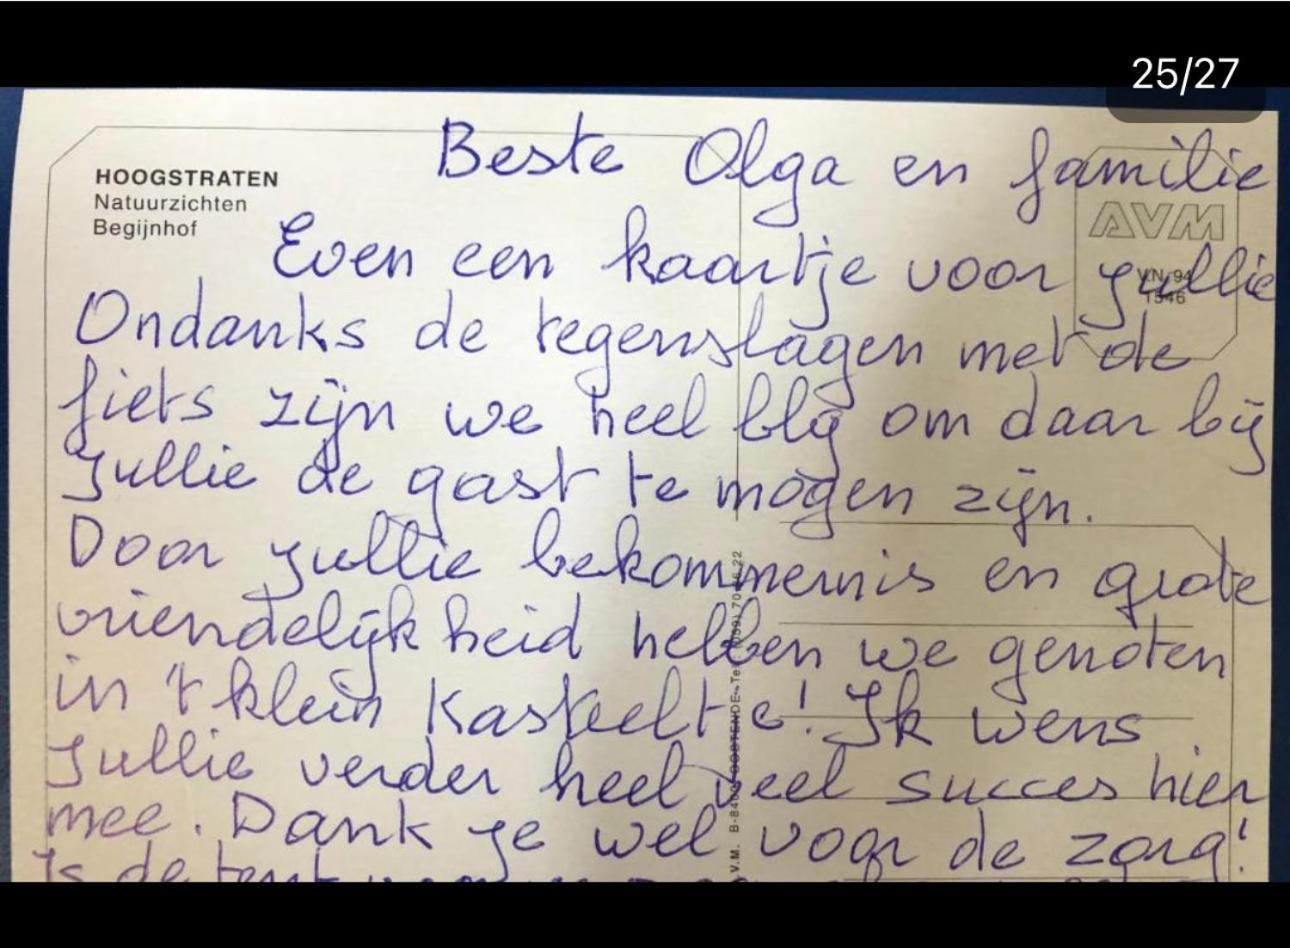 25/27
HOOGSTRATEN
Natuurzichten
Begijnhof
AVM
VN 94
1546
Beste Olga en familie
Even een kaartje voor jullie
Ondanks de tegenslagen met de
fiets zijn we heel blij om daar bij
jullie de gast te mogen zijn.
Door jullie bekommernis en grote
vriendelijkheid hebben we genoten
in 't klein Kasteeltje! Ik wens
jullie verder heel veel succes hier
mee. Dank je wel voor de zorg!
Is de